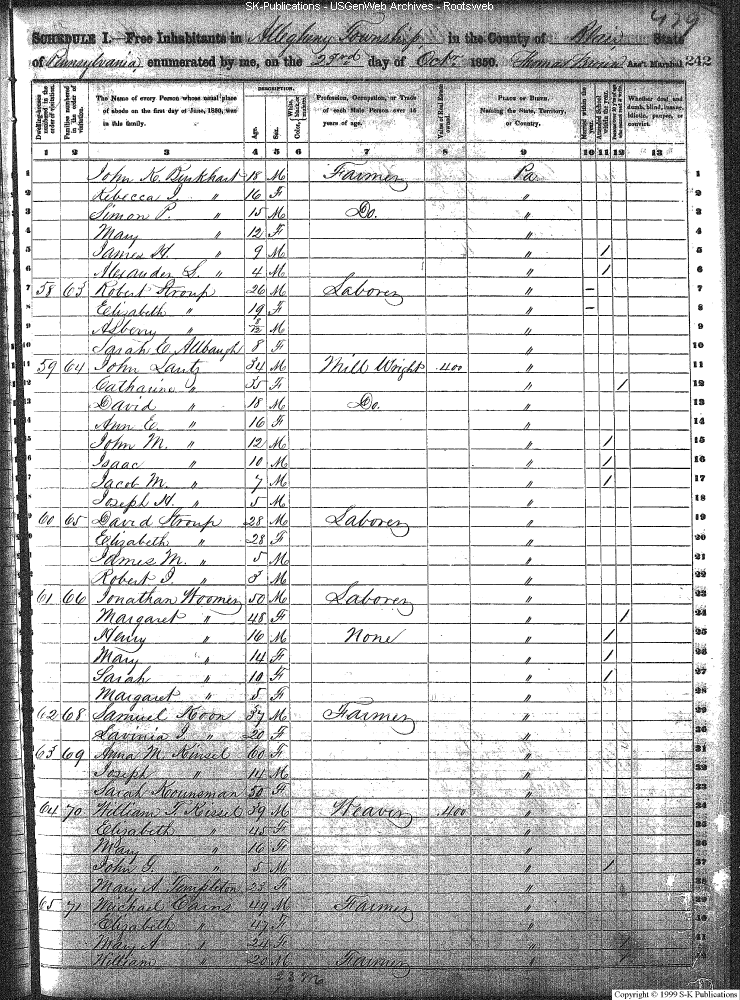 SK-Publications - USGenWeb Archives - Rootsweb
479
SCHEDULE I.—Free Inhabitants in Allegheny Township in the County of Blair State
of Pennsylvania, enumerated by me, on the 23rd day of Octr 1850. Thomas Ass't Marshal 242
DESCRIPTION.
Dwelling-houses numbered in the order of visitation.
Families numbered in the order of visitation.
The Name of every Person whose usual place of abode on the first day of June, 1850, was in this family.
Age.
Sex.
White, black, or mulatto.
Color
Profession, Occupation, or Trade of each Male Person over 15 years of age.
Value of Real Estate owned.
PLACE OF BIRTH. Naming the State, Territory, or Country.
Married within the year.
Attended School within the year.
Whether deaf and dumb, blind, insane, idiotic, pauper, or convict.
1 2 3 4 5 6 7 8 9 10 11 12 13
1 John K. Burkhart 18 M Farmer Pa 1
2 Rebecca J. " 16 F " 2
3 Simon P. " 15 M Do. " 3
4 Mary " 12 F " 4
5 James H. " 9 M " / 5
6 Alexander S. " 4 M " / 6
7 58 63 Robert Stroup 26 M Laborer " – 7
8 Elizabeth " 19 F " – 8
9 Asberry " M " 9
10 Sarah E. Allbaugh 8 F " 10
11 59 64 John Lantz 34 M Mill Wright 400 " 11
12 Catharine " 35 F " / 12
13 David " 18 M Do. " 13
14 Ann E. " 16 F " 14
15 John M. " 12 M " / 15
16 Isaac " 10 M " / 16
17 Jacob M. " 7 M " / 17
18 Joseph H. " 5 M " 18
19 60 65 David Stroup 28 M Laborer " 19
20 Elizabeth " 28 F " 20
21 James M. " 5 M " 21
22 Robert J. " 3 M " 22
23 61 66 Jonathan Woomer 50 M Laborer " 23
24 Margaret " 48 F " / 24
25 Henry " 16 M None " / 25
26 Mary " 14 F " / 26
27 Sarah " 10 F " / 27
28 Margaret " 5 F " 28
29 62 68 Samuel Koon 37 M Farmer " 29
30 Lavinia J. " 20 F " 30
31 63 69 Anna M. Kinsel 60 F " 31
32 Joseph " 14 M " 32
33 Sarah Kounsman 50 F " 33
34 64 70 William T. Kissel 39 M Weaver 400 " 34
35 Elizabeth " 45 F " 35
36 Mary " 16 F " 36
37 John G. " 5 M " / 37
38 Mary A. Templeton 23 F " 38
39 65 71 Michael Carns 49 M Farmer " 39
40 Elizabeth " 47 F " 40
41 Mary A " 24 F " / 41
42 William " 20 M Farmer " / 42
23 M
Copyright © 1999 S-K Publications